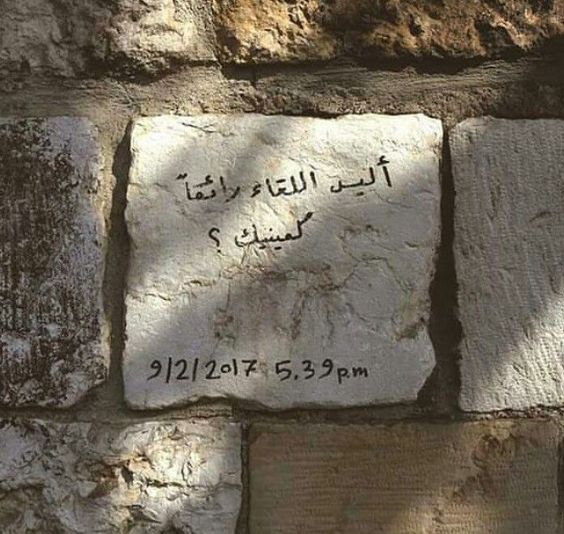 أليس اللقاء رائعاً
كعينيك ؟
9/2/2017 5.39pm